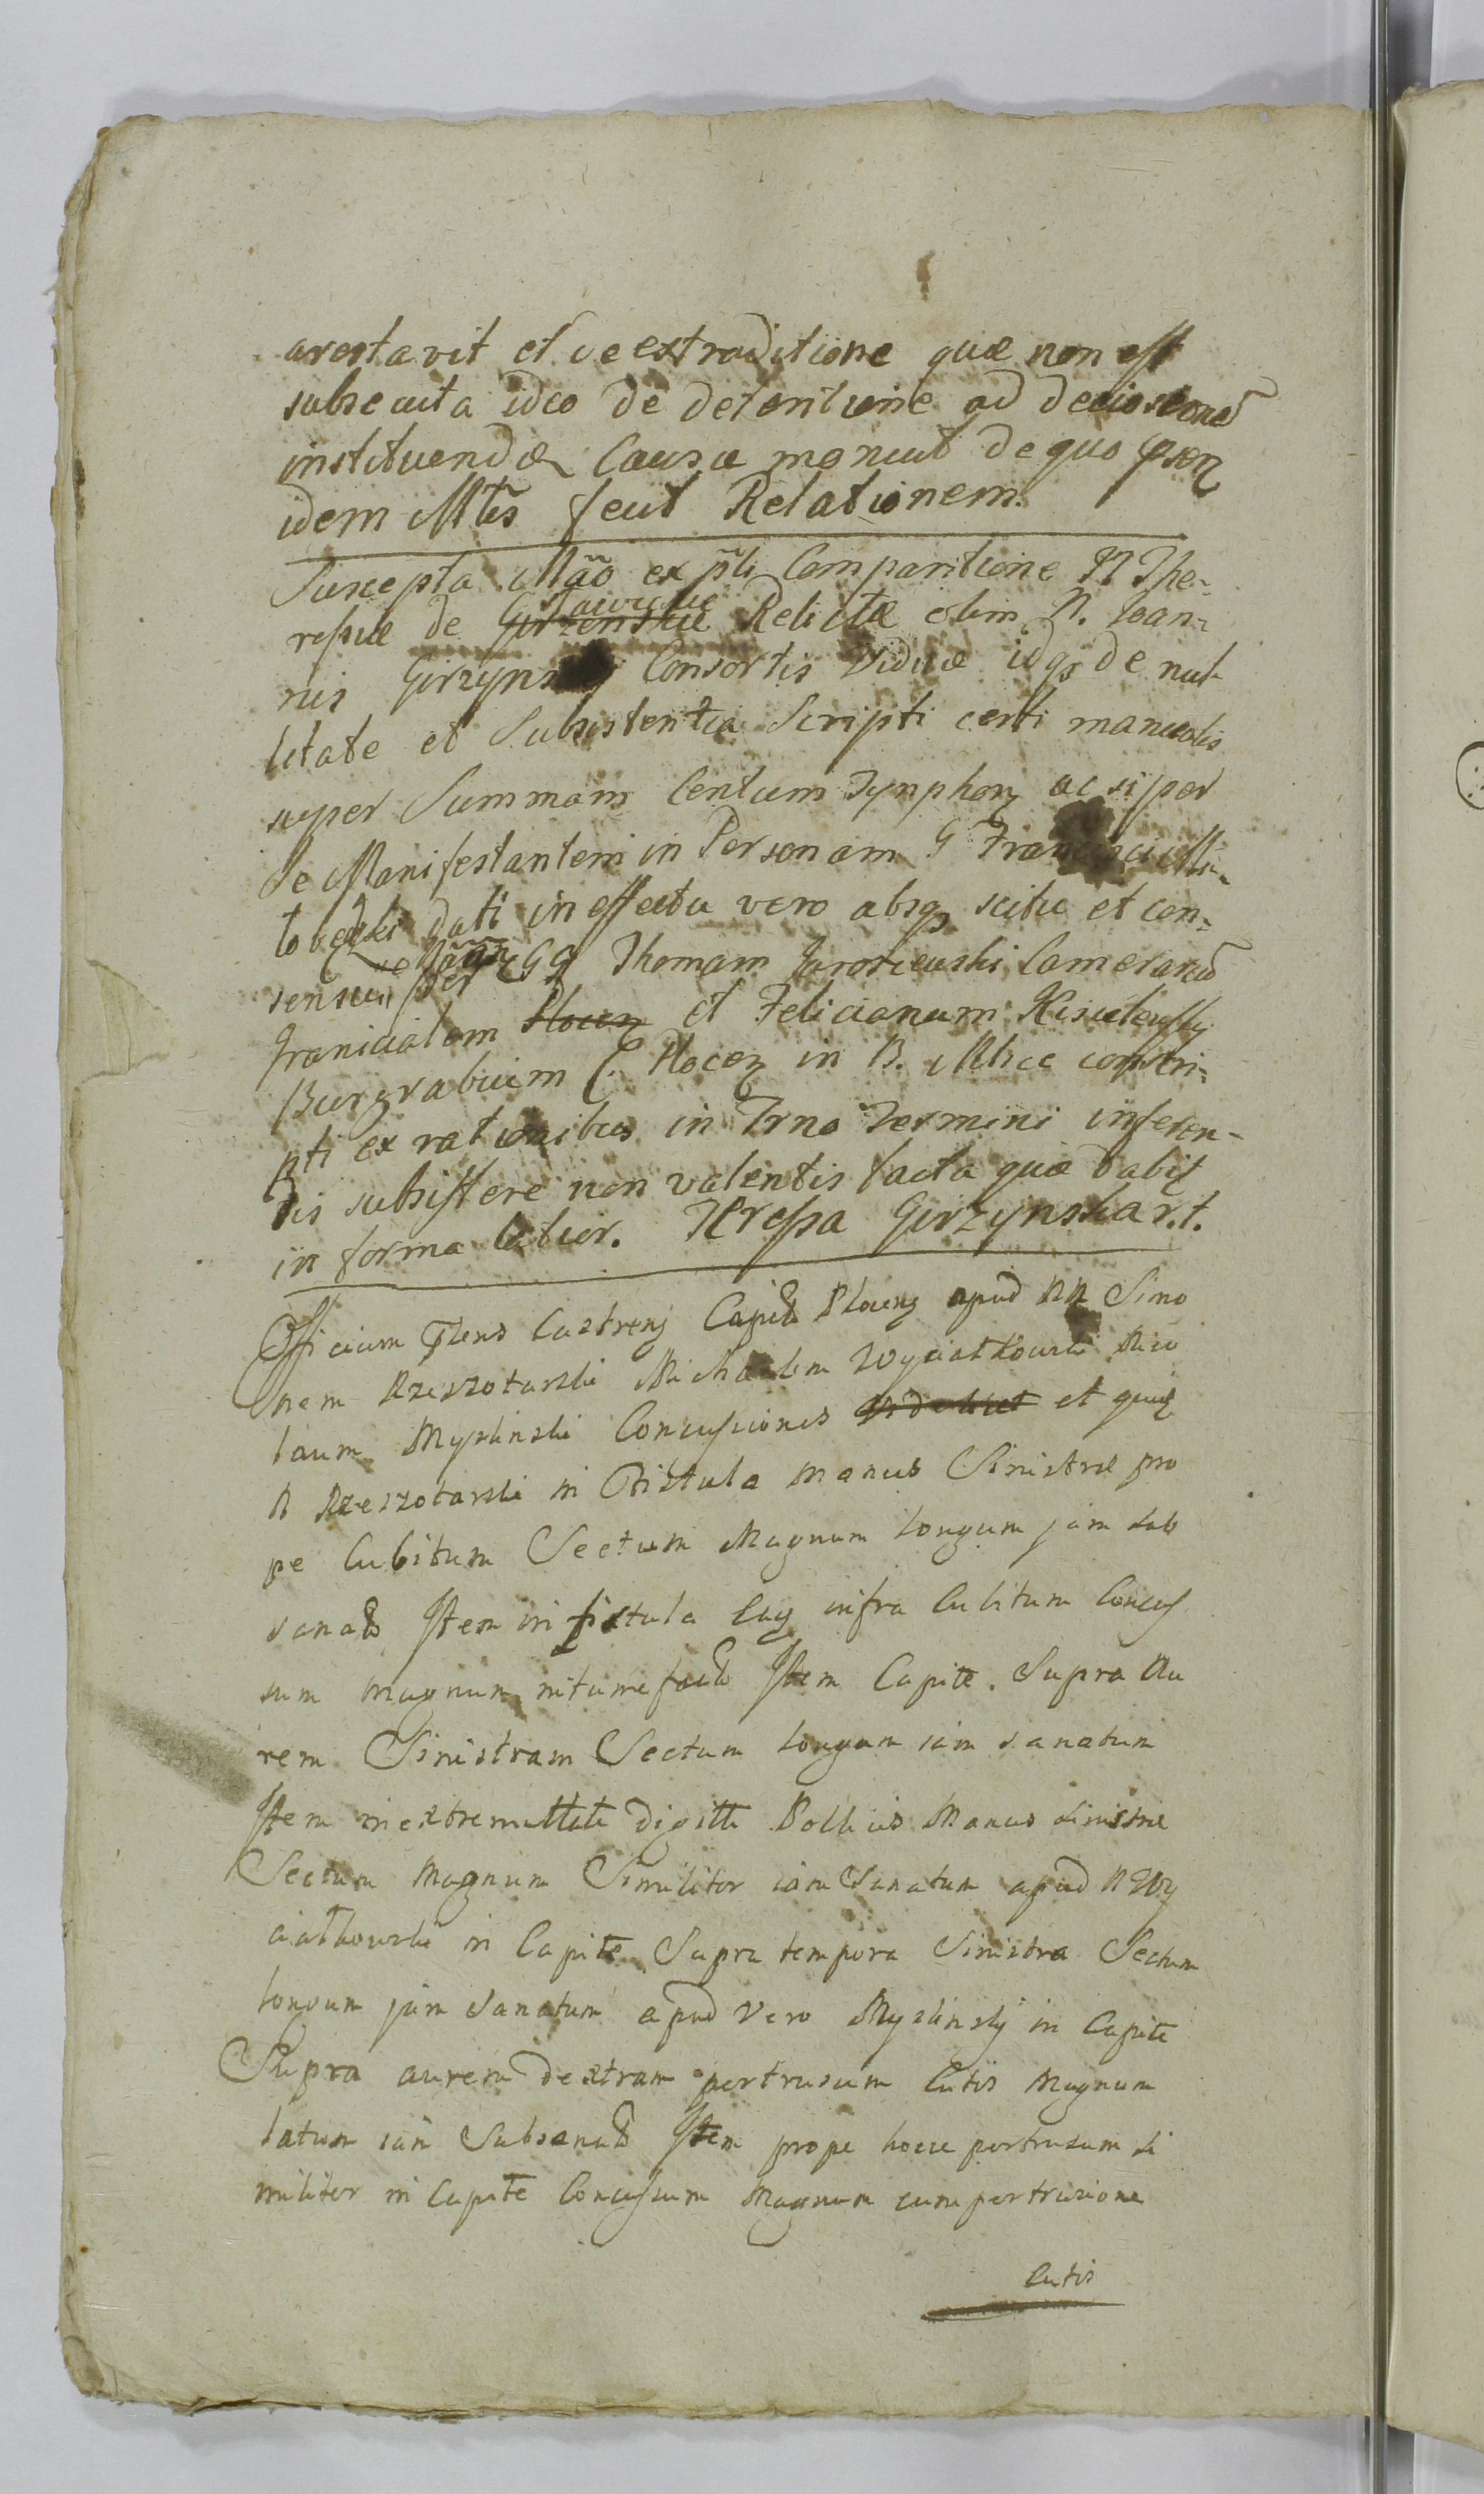 arestavit et de extraditione quæ non est
subsecuta ideo de detentione ad decisionem
instituendæ Causæ monuit de quo psen
idem Mtis fecit Relationem.
Suscepta Mãõ ex p̃li Comparitione N The-
resiæ de Relictæ olim N. Ioan-
nis Gorzyns Consortis Viduæ idqȝ de nul-
litate et Subsistentia Scripti certi manualis
super Summam Centum Tynphon ac si per
Se Manifestantem in Personam G Francisci Mi-
dati in effectu vero absqȝ scitu et con-
sensu per GG Thomam Jarosiewski Camerarium
Granicialem Plocen et Felicianum
Burgrabium C. Plocen in B. Mlice conscri-
pti ex rationibus in Trno Termini inferen-
dis subsistere non valentis facta quæ dabit
in forma latior. Teressa Gorzynska r.t.
Officium Castren Capit Plocen apud NN Simo
nem Rzeszotarski Michaelem Wyciatkowski Nico
laum Myslinski Concussiones et quid
N Rzeszotarski in Fistula manus Sinistræ pro
pe Cubitum Sectum Magnum longum jam sub
sanat Item in fistula infra Cubitum Concus
sum magnum intumefact Item Capite Supra Au
rem Sinistram Sectum longum iam sanatum
Item in extremittate Digitti Pollicis Manus sinistræ
Sectum Magnum Similiter iam Sanatum apud N Wy
ciatkowski in Capite Supra tempora Sinistra Sectum
longum jam Sanatum apud vero Myslinsky in Capite
Supra aurem dextram pertrusum Cutis Magnum
latum iam Subsanat Item prope hocce pertrusum si
militer in Capite Concussum Magnum cum pertrusione
Cutis